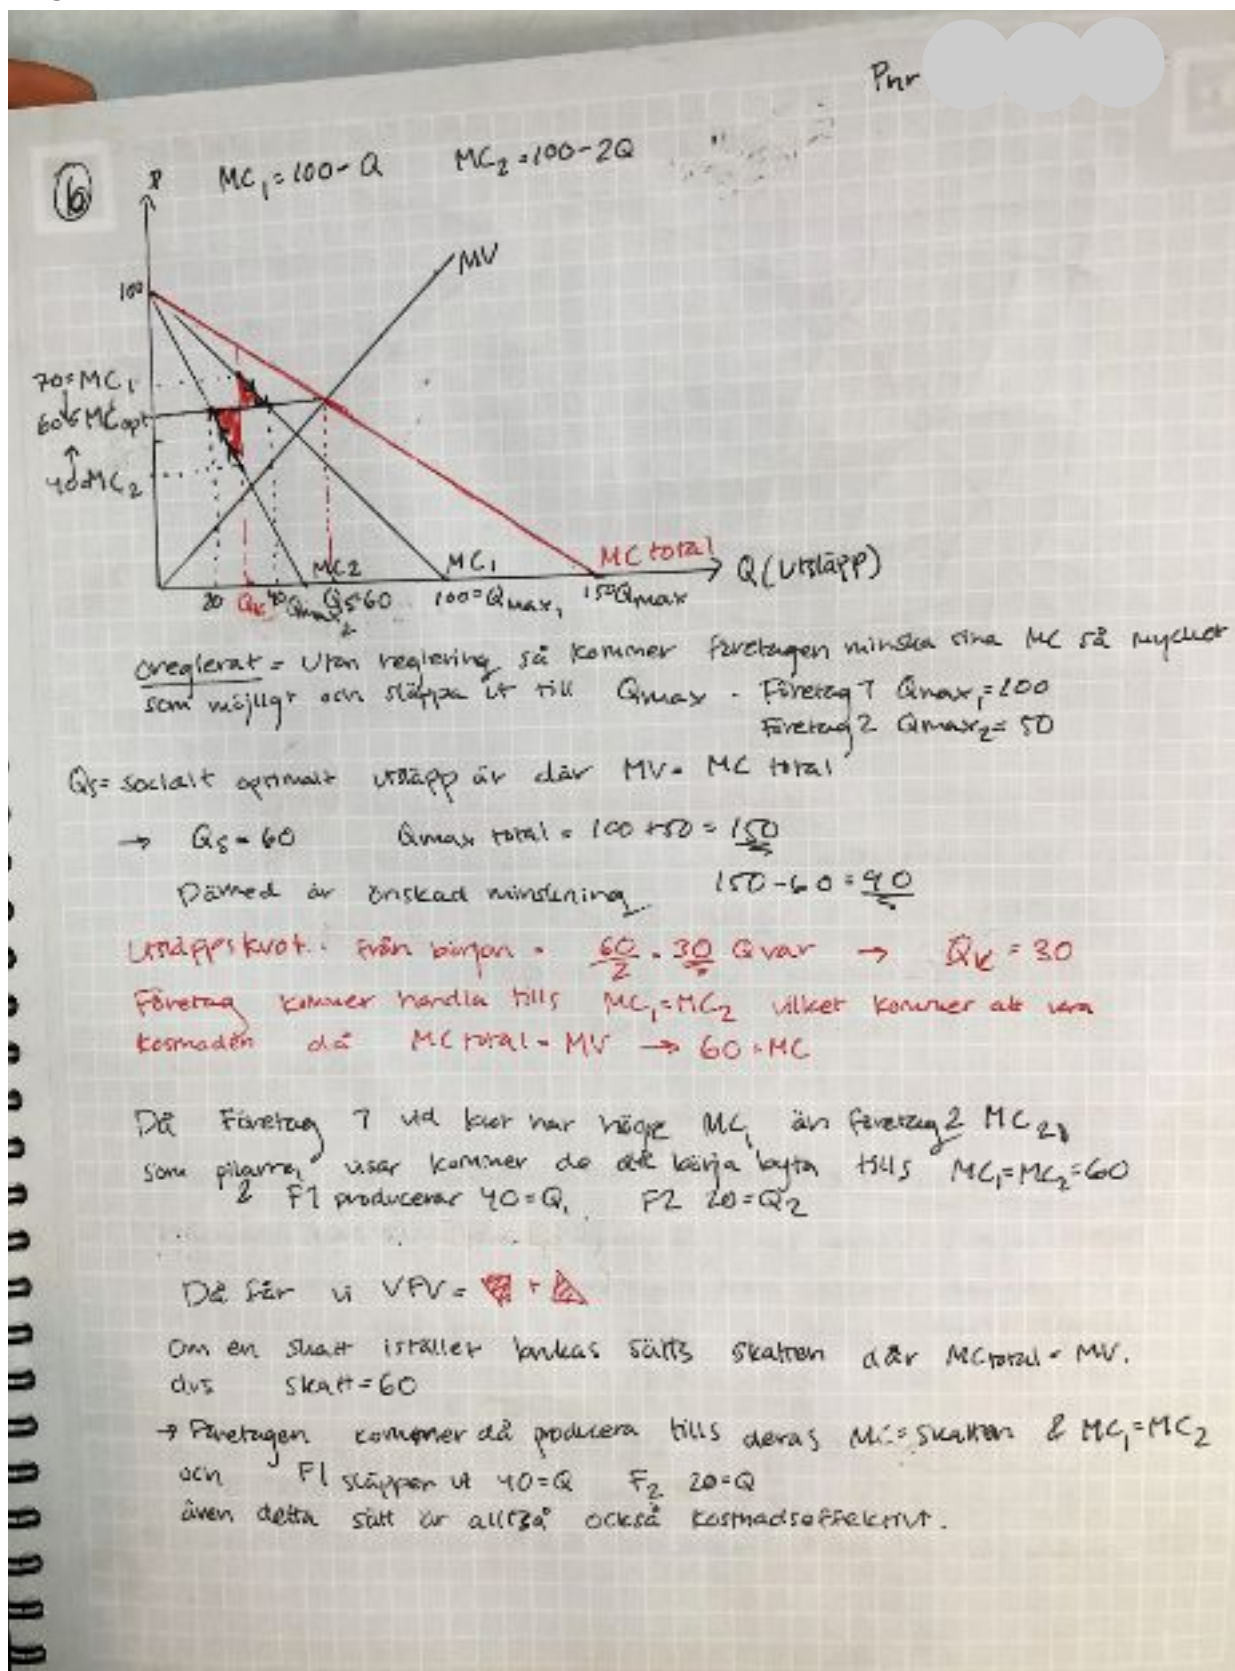 Pnr
6
MC₁ = 100 - Q MC₂ = 100 - 2Q
P
MV
100
70 = MC₁
60 = MC opt
40 = MC₂
MC2
MC₁
MC total
Q (Utsläpp)
20 Qk 40 Qmax₂ Qs=60 100=Qmax₁ 150 Qmax
oreglerat = Utan reglering så kommer företagen minska sina MC så mycket
som möjligt och släppa ut till Qmax. Företag 1 Qmax₁=100
Företag 2 Qmax₂=50
Qs= socialt optimalt utsläpp är där MV = MC total
→ Qs = 60 Qmax total = 100 + 50 = 150
Därmed är önskad minskning 150 - 60 = 90
Utsläppskvot: från början = 60/2 = 30 Q var → Qk = 30
Företag kommer handla tills MC₁=MC₂ vilket kommer att vara
kostnaden då MC total = MV → 60 = MC
Då Företag 1 vid kvot har högre MC₁ än företag 2 MC₂,
som pilarna visar kommer de att börja byta tills MC₁=MC₂=60
& F1 producerar 40=Q₁ F2 20=Q₂
Då får vi VFV = +
Om en skatt istället används sätts skatten där MCtotal = MV.
dvs skatt=60
→ Företagen kommer då producera tills deras MC=skatten & MC₁=MC₂
och F1 släpper ut 40=Q F₂ 20=Q
även detta sätt är alltså också kostnadseffektivt.